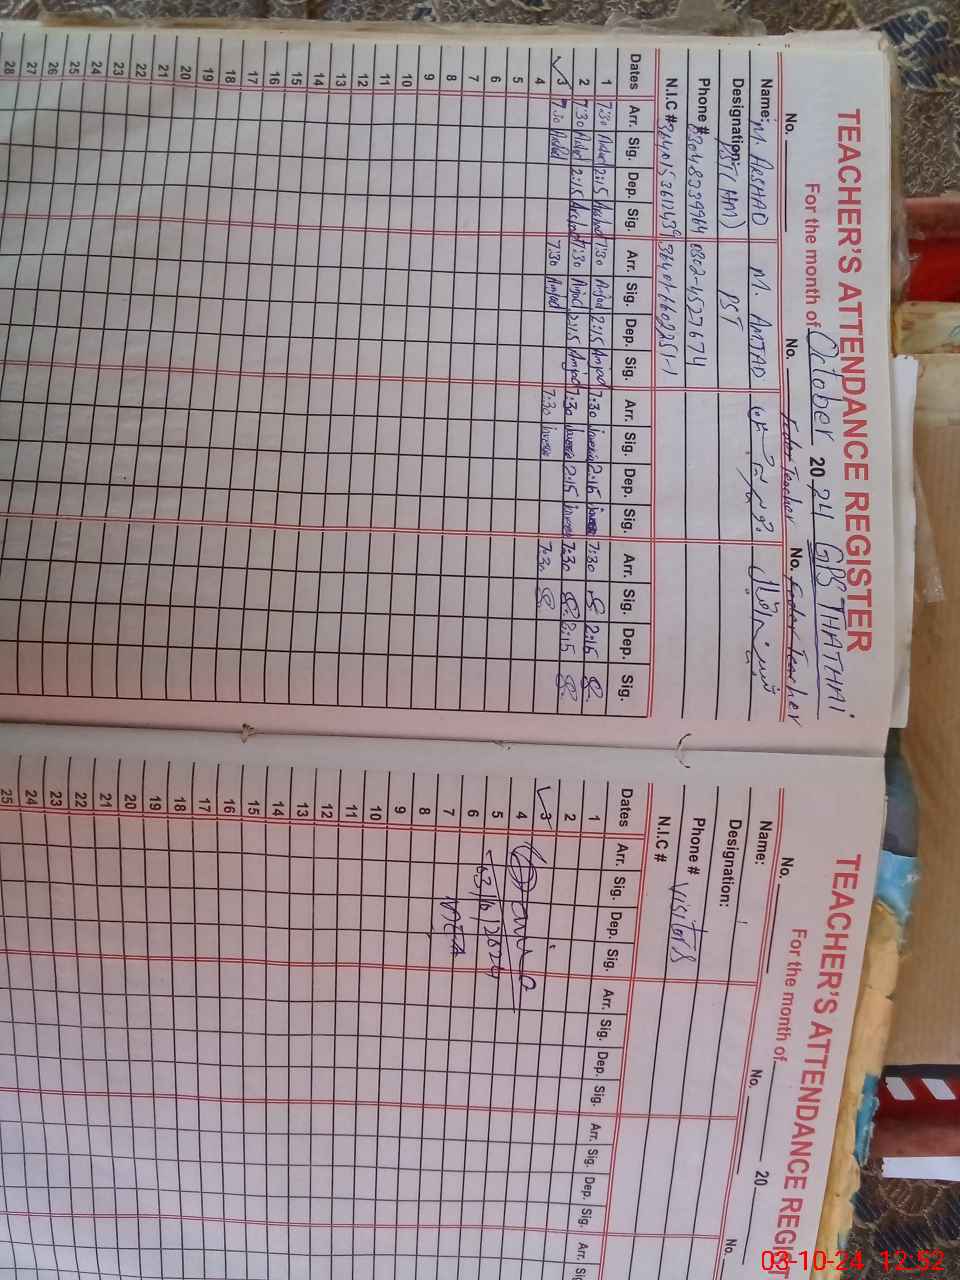 TEACHER'S ATTENDANCE REGISTER
For the month of October 2024 GPS THATHAI
No. No. Fodar Teacher No. Fodar Teacher
Name: M. ARSHAD M. AMJAD
Designation: PST (HM) PST
Phone # 03048339964 0302-4527674
N.I.C #
Dates Arr. Sig. Dep. Sig. Arr. Sig. Dep. Sig. Arr. Sig. Dep. Sig. Arr. Sig. Dep. Sig.
1 7:30 Arshad 2:15 Arshad 7:30 Amjad 2:15 Amjad 7:30 Javeria 2:15 Javeria 7:30 2:15
2 7:30 Arshad 2:15 Arshad 7:30 Amjad 2:15 Amjad 7:30 Javeria 2:15 Javeria 7:30 2:15
3 7:30 Arshad 7:30 Amjad 7:30 Javeria 7:30
4
5
6
7
8
9
10
11
12
13
14
15
16
17
18
19
20
21
22
23
24
25
26
27
28
TEACHER'S ATTENDANCE REGIST
For the month of 20
No. No. No.
Name:
Designation:
Phone # Visitors
N.I.C #
Dates Arr. Sig. Dep. Sig. Arr. Sig. Dep. Sig. Arr. Sig. Dep. Sig. Arr. Sig
1
2
3
4
5
6 03/10/2024
7 MEA
8
9
10
11
12
13
14
15
16
17
18
19
20
21
22
23
24
25
03-10-24 12:52